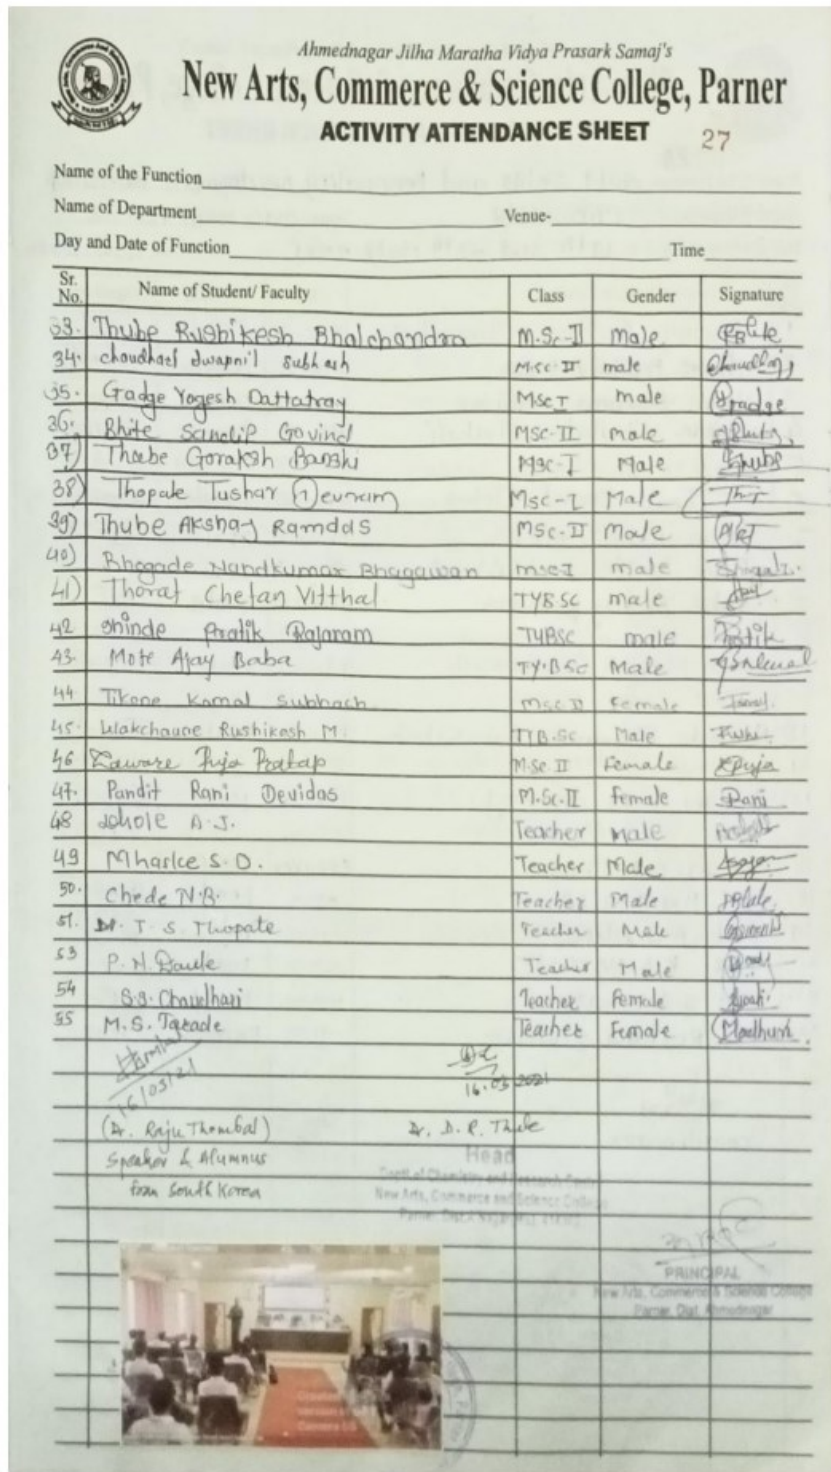 Ahmednagar Jilha Maratha Vidya Prasark Samaj's
New Arts, Commerce & Science College, Parner
ACTIVITY ATTENDANCE SHEET 27
Name of the Function
Name of Department Venue-
Day and Date of Function Time
Sr. No. Name of Student/ Faculty Class Gender Signature
33. Thube Rushikesh Bhalchandra M.Sc-II Male
34. choudhari swapnil subhash M.sc-II male
35. Gadge Yogesh Dattatray MSc I male Gadge
36. Bhite Sandip Govind MSC-II male
37) Thube Goraksh Banshi MSC-I Male
38) Thopate Tushar Devram MSC-I Male
39) Thube Akshay Ramdas MSC-II Male
40) Bhogade Nandkumar Bhagawan msc-I male
41) Thorat Chetan Vitthal TYBSC male
42 Shinde Pratik Rajaram TYBSC male Pratik
43. Mote Ajay Baba TY.BSc Male
44 Tikone Komal Subhach MSC II Female
45. Wakchaure Rushikesh M. TYB.Sc Male
46 Zaware Puja Pratap M.Sc. II Female Puja
47. Pandit Rani Devidas M.Sc.-II female Rani
48 A.J. Teacher Male
49 Mharke S.D. Teacher Male
50. Chede N.B. Teacher Male
51. Dr. T. S. Thopate Teacher Male
53 P. N. Teacher Male
54 S.S. Chaudhari Teacher Female
55 M.S. Teacher Female
16/03/21 16.03.2021
(Dr. Raju Thombal) Dr. D. R. Thube
Speaker & Alumnus Head
from South Korea Dept. of Chemistry and Research
New Arts, Commerce and Science College
PRINCIPAL
New Arts, Commerce & Science College
Parner, Dist. Ahmednagar